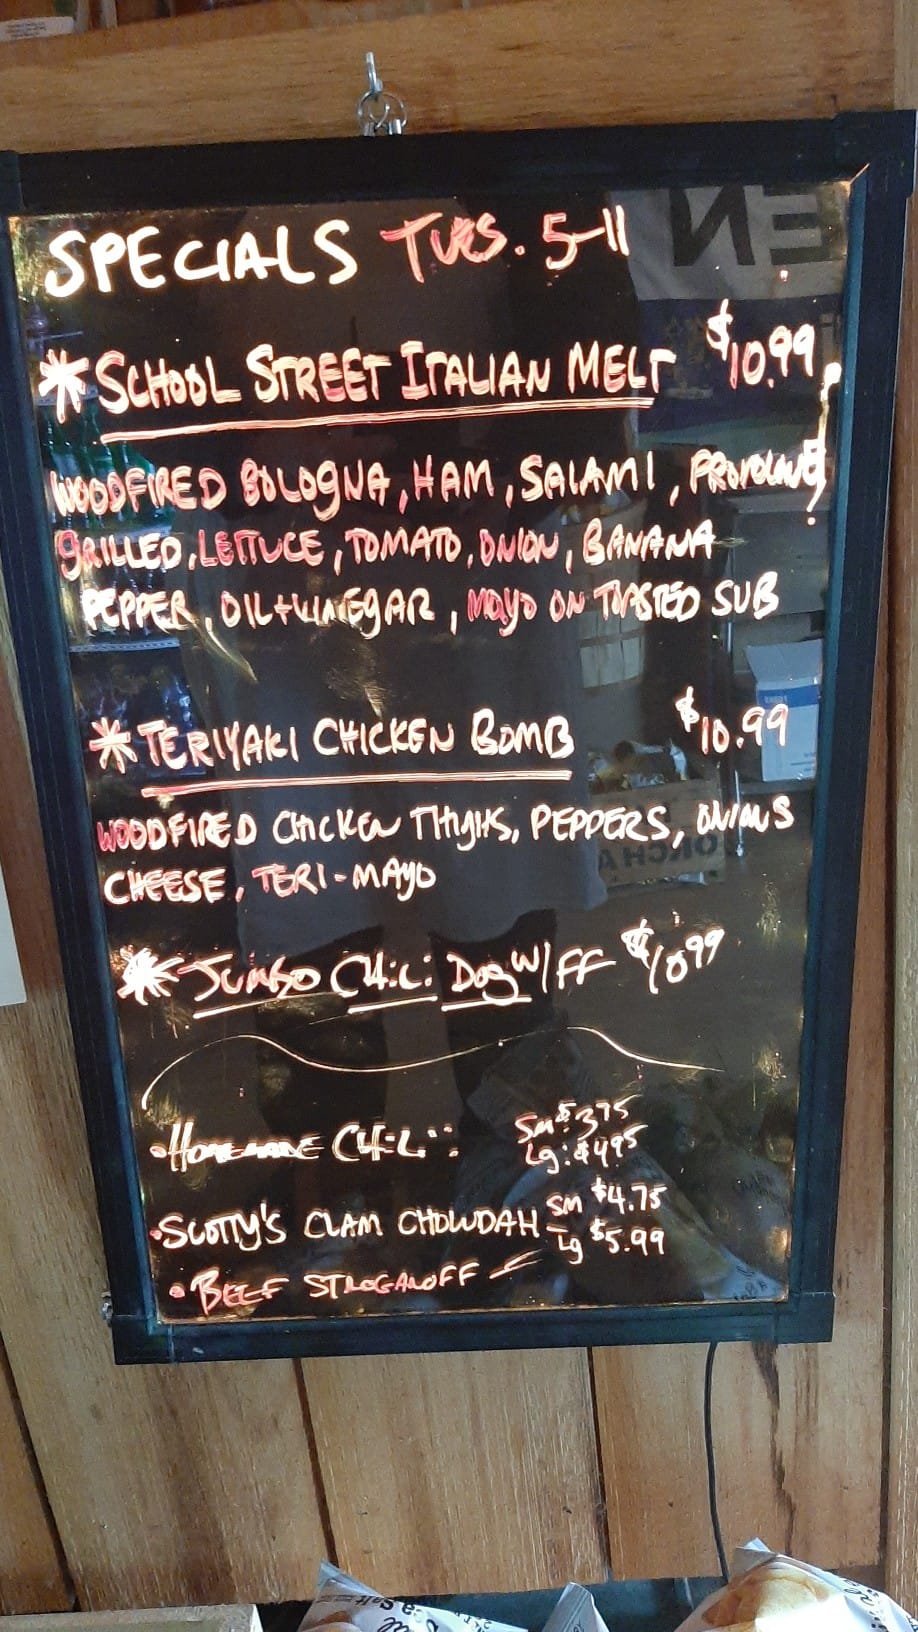 SPECIALS TUES. 5-11
* SCHOOL STREET ITALIAN MELT $10.99
WOODFIRED BOLOGNA, HAM, SALAMI, PROVOLONE
GRILLED, LETTUCE, TOMATO, ONION, BANANA
PEPPER, OIL+VINEGAR, MAYO ON TOASTED SUB
* TERIYAKI CHICKEN BOMB $10.99
WOODFIRED CHICKEN THIGHS, PEPPERS, ONIONS
CHEESE, TERI-MAYO
* JUMBO CHiLi DOg W/FF $10.99
• HOMEMADE CHiLi: Sm: $3.75
Lg: $4.95
• SCOTTY'S CLAM CHOWDAH SM $4.75
Lg $5.99
• BEEF STROGANOFF